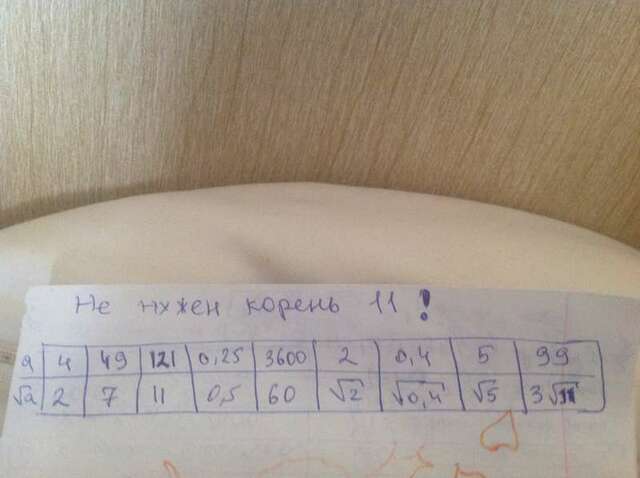 Не нужен корень 11!
a 4 49 121 0,25 3600 2 0,4 5 99
√a 2 7 11 0,5 60 √2 √0,4 √5 3√11